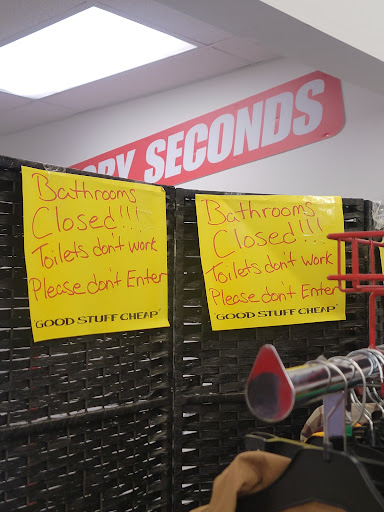 SECONDS
Bathrooms
Closed!!!
Toilets don't work
Please don't Enter
"GOOD STUFF CHEAP"
Bathrooms
Closed!!!
Toilets don't work
Please don't Enter
"GOOD STUFF CHEAP"